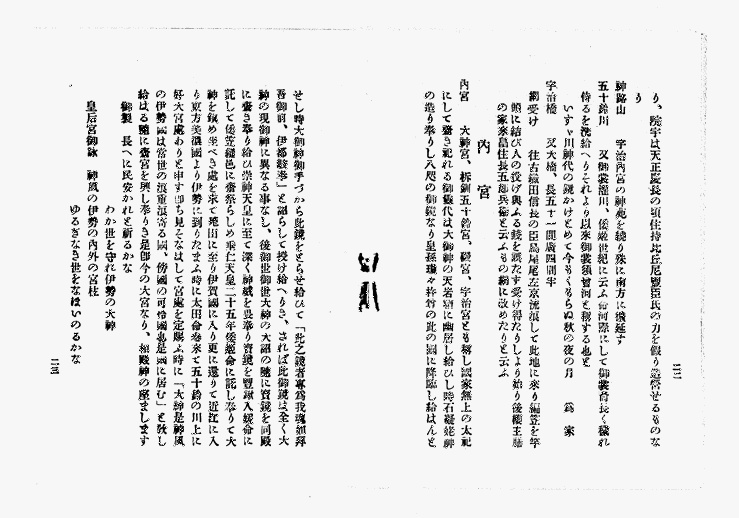 り、院宇は天正慶長の頃住持比丘尼豐臣氏の力を假り造營せるものな
り
神路山　宇治內宮の神苑を繞り殊に南方に幾延す
五十鈴川　又御裳濯川、倭姬世紀に云ふ斎河際にして御裳齋長く穢れ
侍るを洗給へりそれより以來御裳須曾河と稱する也と
いすゞ川神代の鏡かけとめて今もくもらぬ秋の夜の月　爲家
宇治橋　又大橋、長五十一間廣四間半
網受け　往古織田信長の臣鳥屋尾左京流浪して此地に來り編笠を竿
頭に結び人の投げ與ふる錢を誤たず受け得たりしより始り後櫻主膳
の家來畠住長五郎兵衞と云ふもの網に改めたりと云ふ
內宮
內宮　大神宮、拆釧五十鈴宮、磯宮、宇治宮とも稱し國家無上の太祀
にして齋き祀れる御靈代は大御神の天岩窟に幽居し給ひし時石凝姥神
の造り奉りし八咫の御鏡なり皇孫瓊々杵尊の此の國に降臨し給はんと
二二
せし時大御神御手づから此鏡をとらせ給ひて「此之鏡者專爲我魂如拜
吾御前、伊都岐奉」と詔らして授け給へりき、されば此御鏡は全く大
神の現御神に異なる事なし、後御世御世大神の大詔の隨に寶鏡を同殿
に齋き奉り給ひ崇神天皇に至て深く神威を畏奉り寶鏡を豐鍬入姬命に
託して倭笠縫邑に齋祭らしめ垂仁天皇二十五年倭姬命に託し奉りて大
神を鎭め坐べき處を求て菟田に至り伊賀國に入り更に還りて近江に入
り東方美濃國より伊勢に到りたまふ時に太田命參來て五十鈴の川上に
好大宮處ありと申す卽ち見そなはして宮處を定賜ふ時に「大神是神風
の伊勢國は常世の浪重浪寄る國、傍國の可怜國也是國に居む」と敎し
給はる隨に齋宮を興し奉りき是卽今の大宮なり、相殿神の座まします
御製　長へに民安かれと祈るかな
わが世を守れ伊勢の大神
皇后宮御詠　神風の伊勢の內外の宮柱
ゆるぎなき世をなほいのるかな
二三